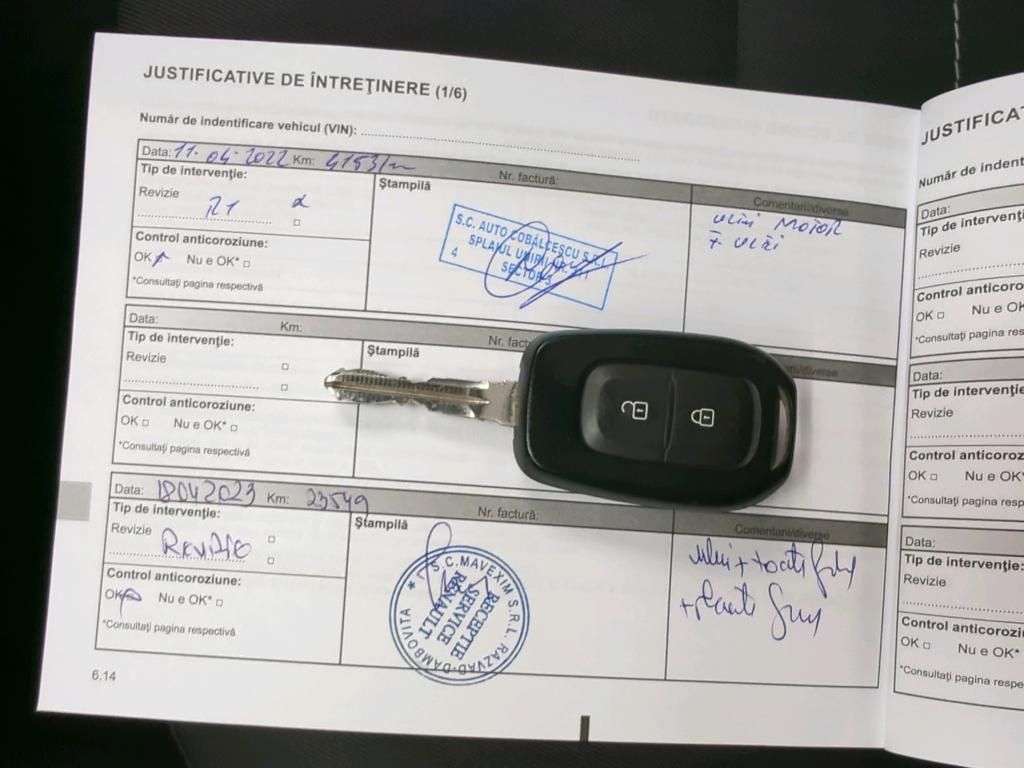 JUSTIFICATIVE DE ÎNTREŢINERE (1/6)
Număr de indentificare vehicul (VIN):
Data: 11.04.2022 Km:
Nr. factură:
Tip de intervenţie:
Ştampilă
Comentarii/diverse
Revizie
R1
MOTOR
S.C. AUTO COBĂLCESCU S.R.L.
SPLAIUL UNIRII NR.
SECTOR 3
4
Control anticoroziune:
OK Nu e OK*
*Consultaţi pagina respectivă
Data: Km: Nr. fact
Tip de intervenţie:
Ştampilă
Revizie
Control anticoroziune:
OK Nu e OK*
*Consultaţi pagina respectivă
Data: 18042023 Km: 23549
Nr. factură:
Tip de intervenţie:
Ştampilă
Comentarii/diverse
Revizie
Revizie
Control anticoroziune:
OK Nu e OK*
*Consultaţi pagina respectivă
S.C. MAVEXIM S.R.L. RAZVAD-DAMBOVITA
RECEPTIE
SERVICE
RENAULT
6.14
JUSTIFICA
Număr de indent
Data:
Tip de intervenţi
Revizie
Control anticoroz
OK Nu e OK
*Consultaţi pagina respe
Data:
Tip de intervenţie
Revizie
Control anticoroz
OK Nu e OK*
*Consultaţi pagina respec
Data:
Tip de intervenţie:
Revizie
Control anticoroziu
OK Nu e OK*
*Consultaţi pagina respe